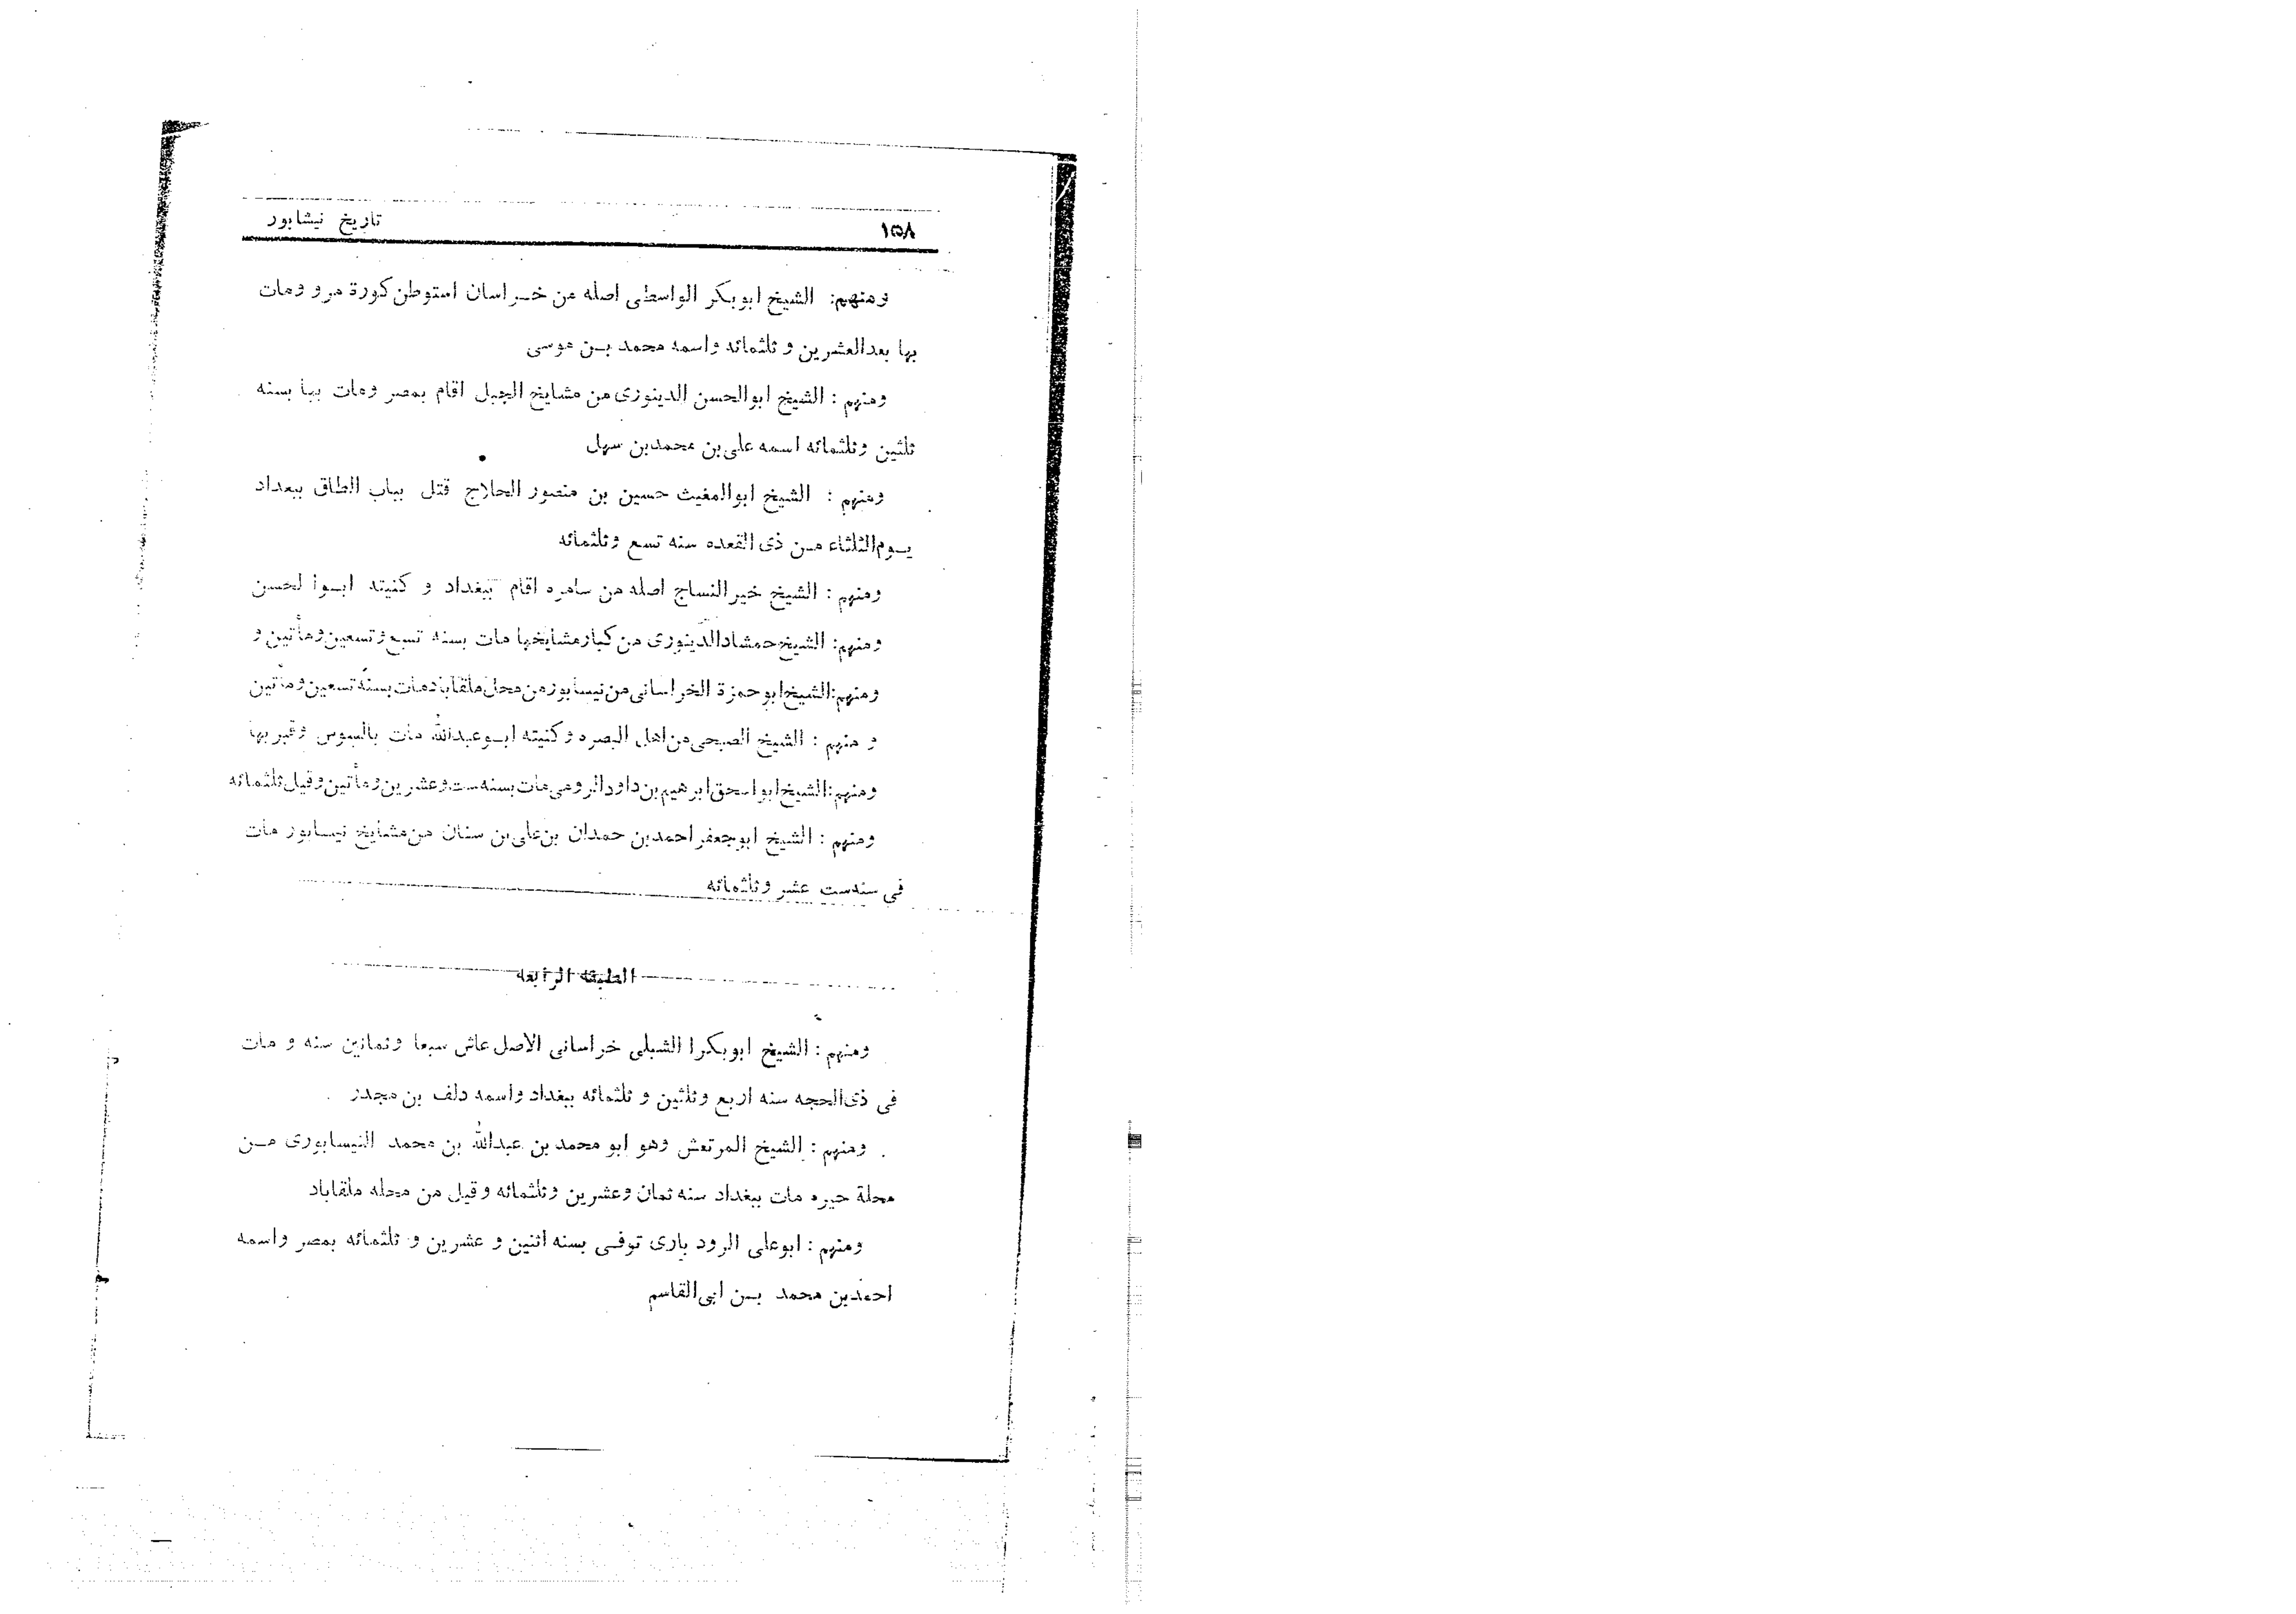 ١٥٨ تاریخ نیشابور
ومنهم: الشیخ ابوبکر الواسطی اصله من خراسان استوطن کورة مرو ومات
بها بعدالعشرین و ثلثمائه واسمه محمد بن موسی
ومنهم : الشیخ ابوالحسن الدینوری من مشایخ الجبل اقام بمصر ومات بها بسنه
ثلثین وثلثمائه اسمه علی بن محمدبن سهل
ومنهم : الشیخ ابوالمغیث حسین بن منصور الحلاج قتل بباب الطاق ببغداد
یوم الثلثاء من ذی القعده سنه تسع وثلثمائه
ومنهم : الشیخ خیرالنساج اصله من سامره اقام ببغداد و کنیته ابوا لحسن
ومنهم: الشیخ حمشادالدینوری من کبارمشایخها مات بسنه تسع وتسعین ومأتین و
ومنهم: الشیخ ابوحمزة الخراسانی من نیسابور من محل ملقاباد مات بسنه تسعین ومأتین
و منهم : الشیخ الصبحی من اهل البصره وکنیته ابوعبدالله مات بالسوس وقبر بها
ومنهم: الشیخ ابواسحق ابرهیم بن داود الرومی مات بسنه ست وعشرین ومأتین وقیل ثلثمائه
ومنهم : الشیخ ابوجعفر احمدبن حمدان بن علی بن سنان من مشایخ نیسابور مات
فی سنه ست عشر وثلثمائه
الطبقه الرابعه
ومنهم : الشیخ ابوبکرا الشبلی خراسانی الاصل عاش سبعا وثمانین سنه و مات
فی ذی الحجه سنه اربع وثلثین و ثلثمائه ببغداد واسمه دلف بن مجدر
ومنهم : الشیخ المرتعش وهو ابو محمد بن عبدالله بن محمد النیسابوری من
محلة حیره مات ببغداد سنه ثمان وعشرین وثلثمائه وقیل من محله ملقاباد
ومنهم : ابوعلی الرود باری توفی بسنه اثنین و عشرین و ثلثمائه بمصر واسمه
احمدبن محمد بن ابی القاسم